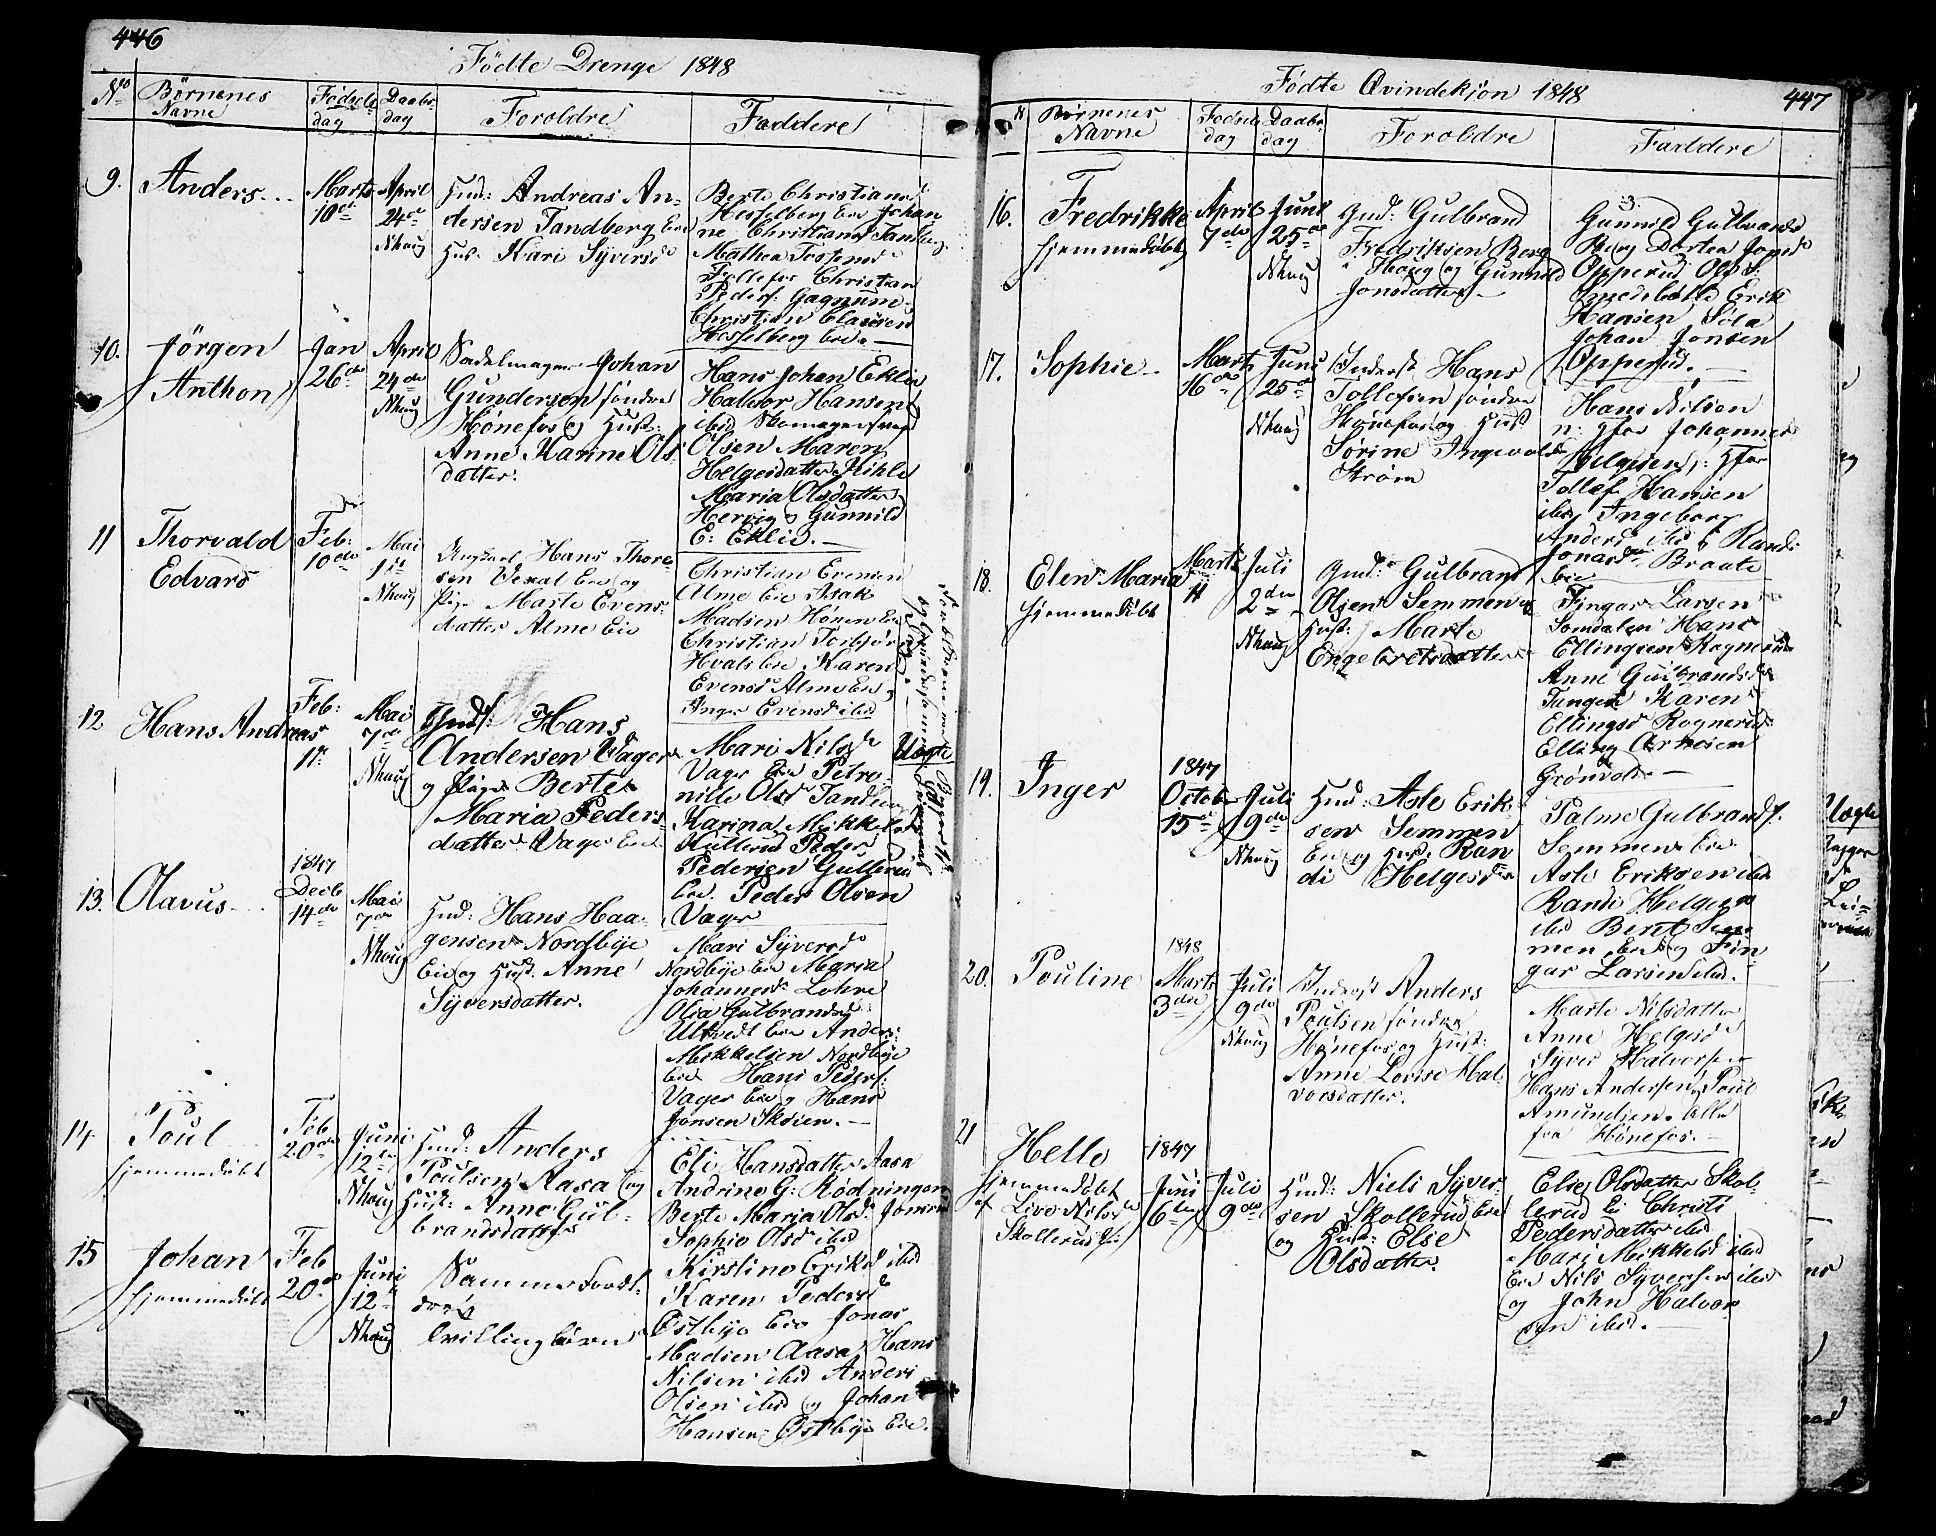 446
Födte Drenge 1848
No
Börnenes
Navne
Födsels
dag
Daabs
dag
Foroldre
Faddere
9.
Anders
Marts
10de
April
24de
Nhaug
Gmd: Andreas An=
dersen Tandberg Eie
Hus. Kari Syversd
Berte Christians
Hesselberg Eie Johan
ne Christians Tandbg.
Mathea Tostensd
Follefos Christian
Peders: Gagnum
Christian Clausen
Hesselberg Eie.
10.
Jörgen
Anthon
Jan
26de
April
24de
Nhaug
Sadelmager Johan
Gundersen söndre
Hönefos og Hust:
Anne Karine Ols
datter.
Hans Johan Eklie
Halvor Hansen
ibid Skomagersvend
Olsen Maren
Helgesdatter Kihle
Maria Olsdatter
Hervig og Gunnild
E: Eklie.
11
Thorvald
Edvard
Feb:
10de
Mai
1ste
Nhaug
Ungkarl Hans Thore
sen Vexal Eie og
Pige Marte Evens
datter Alme Eie
Christian Evensen
Alme Eie Isak
Madsen Hönen Eie
Christian Torbjör
Hvals Eie Karen
Evensd Alme Eie
Inger Evensd ibid
12
Hans Andreas
Feb:
1ste
Mai
7de
Nhaug
Gmds: Hans
Andersen Vager
og Pige Berte
Maria Peders
datter Vager Eie
Mari Nilsd
Vager Eie Petro
nille Olsd Tandb
Karina Mikkelsd
Kullerud Peder
Pedersen Gullerud
Eie Peder Olsen
Vager
Uægte
13.
Olavus
1847
Decb
14de
Mai
7de
Nhaug
Hmd: Hans Haa
gensen Nordbye
Eie og Hust: Anne
Syversdatter.
Mari Syversd
Nordbye Eie Maria
Johannesd Lohre
Olea Gulbrandsd
Ultvedt Eie Anders
Mikkelsen Nordbye
Eie Hans Peders:
Vager Eie og Hans
Jonsen Skoien.
14.
Poul
hjemmedöbt
Feb
20de
Juni
12te
Nhaug
Hmd: Anders
Poulsen Aasa og
Hust: Anne Gul=
brandsdatter
Eli Hansdatter Aasa
Andrine G: Rödningen
Berte Maria Olsd Jonsrud
Sophie Olsd ibid
15
Johan
hjemmedöbt
Feb
20de
Juni
12te
Nhaug
Samme Foræl=
dre
Tvillingbörn
Kirstine Eriksd ibid
Karen Pedersd
Östbye Eie Jonas
Madsen Aasa Hans
Nilsen ibid Anders
Olsen ibid og Johan
Hansen Östbye Eie.
Födte Qvindekjön 1848
447
N
Börnenes
Navne
Födsels
dag
Daabs
dag
Foroldre
Faddere
16.
Fredrikke
hjemmedöbt
April
7de
Juni
25de
Nhaug
Gmd: Gulbrand
Fredriksen Berg
i Haug og Gunnild
Jonsdatter
Gunnild Gulbrands
Berg Dorten Jonsd
Opperud Ole S:
Smedsbøle Erik
Hansen Sola
Johan Jonsen
Opperud.
17.
Sophie
Marts
16de
Juni
25de
Nhaug
Inderst Hans
Tollefsen söndre
Hönefos og Hust
Sörine Ingevolds
Ström
Hans Nilsen
n: Hfos Johannes
Helgesen s: Hfos
Tollef Hansen
ibid Ingeborg
Anders ibid og Randi
Jonasd Braate
Eie
18.
Elen Maria
hjemmedöbt
Marts
11
Juli
2den
Nhaug
Gmd: Gulbrand
Olsen Semmen og
Hust: Marte
Engebretsdatter
Fingar Larsen
Somdalen Hans
Ellingsen Rognerud
Anne Gulbrandsd
Tangen Karen
Ellingsd Rognerud
Elling Arnesen
Grönvold.
19.
Inger
1847
October
15de
Juli
9de
Nhaug
Hmd: Asle Erik
sen Semmen
Eie og Hust: Ran
di Helgesd
Palme Gulbrands.
Semmen Eie
Asle Eriksen ibid
Randi Helgesd
ibid Berit Sem
men Eie og Fin
gar Larsen ibid.
20.
Pouline
1848
Marts
3die
Juli
9de
Nhaug
Inderst Anders
Poulsen söndre
Hönefos og Hust:
Anne Lovise Hal
vorsdatter.
Marte Nilsdatter
Anne Helgesd
Syver Halvorsen
Hans Andersen og Poul
Amundsen alle
fra Hönefos.
21
Helle
hjemmedöbt
af Live Nilsd
Skollerud Eie
1847
Juni
6te
Juli
9de
Hmd: Niels Syver
sen Skollerud Eie
og Hust: Else
Olsdatter.
Elie Olsdatter Skol=
lerud Ei Christi
Pedersdatter ibid
Mari Mikkelsd ibid
Eie Nils Syversen ibid
og John Halvor
sen ibid.
Uægte